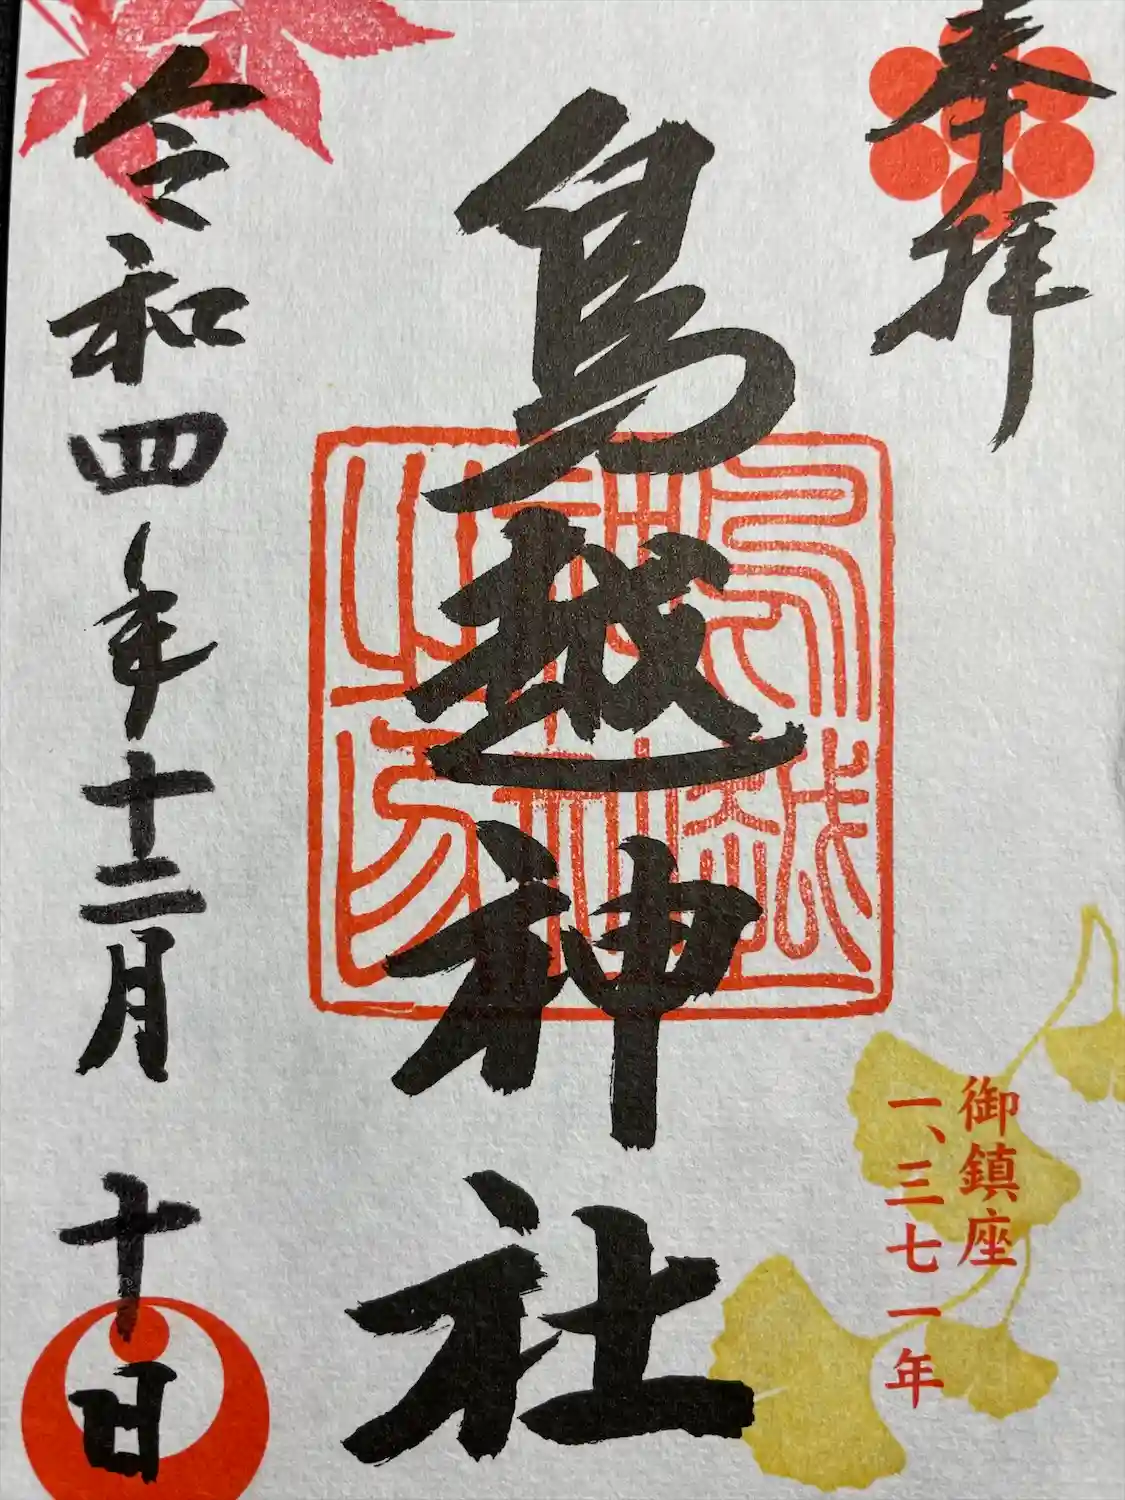 奉拝
鳥越神社
鳥越
神社
之印
御鎮座
一、三七一年
令和四年十二月十日